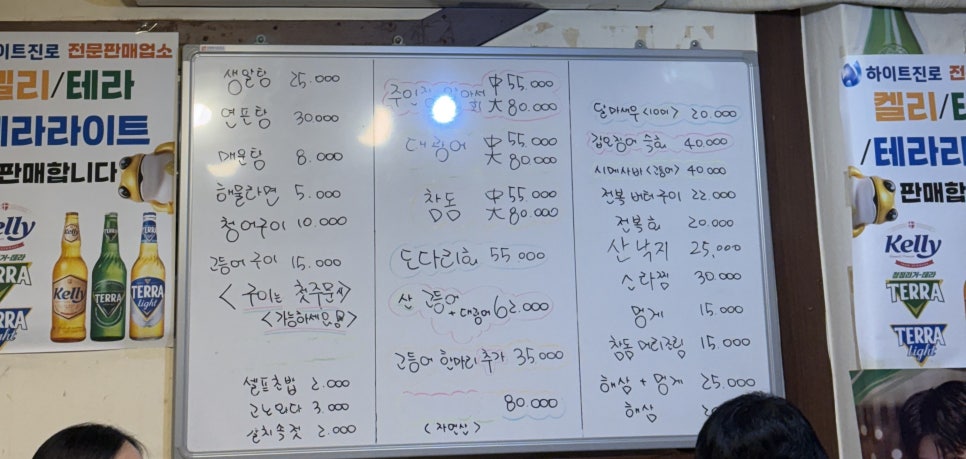 하이트진로 전문판매업소
켈리/테라
테라라이트
판매합니다
Kelly
TERRA
TERRA
light
Kelly
TERRA
TERRA
light
생알탕 25.000
연포탕 30.000
매운탕 8.000
해물라면 5.000
청어구이 10.000
고등어구이 15.000
<구이는 첫주문시>
<가능하세요>
셀프초밥 2.000
고노와다 3.000
갈치속젓 2.000
中 55.000
회 大 80.000
대광어 中 55.000
大 80.000
참돔 中 55.000
大 80.000
도다리회 55.000
산 고등어
+ 대광어 62.000
고등어 한마리 추가 35.000
80.000
<자연산>
닭새우<10미> 20.000
갑오징어 숙회 40.000
시메사바<고등어> 40.000
전복 버터구이 22.000
전복회 20.000
산낙지 25,000
소라찜 30.000
멍게 15.000
참돔 머리조림 15.000
해삼 + 멍게 25.000
해삼
하이트진로
켈리/
/테라
판매합
Kelly
청정라거-테라
TERRA
TERRA
light